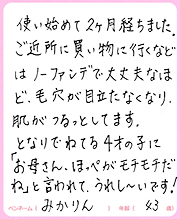 使い始めて2ヶ月経ちました。
ご近所に買い物に行くなど
はノーファンデで大丈夫なほ
ど、毛穴が目立たなくなり、
肌がつるっとしてます。
となりでねてる4才の子に
「お母さん、ほっぺがモチモチだ
ね」と言われて、うれし〜いです!
ペンネーム( みかりん ) 年齢( 43 歳)